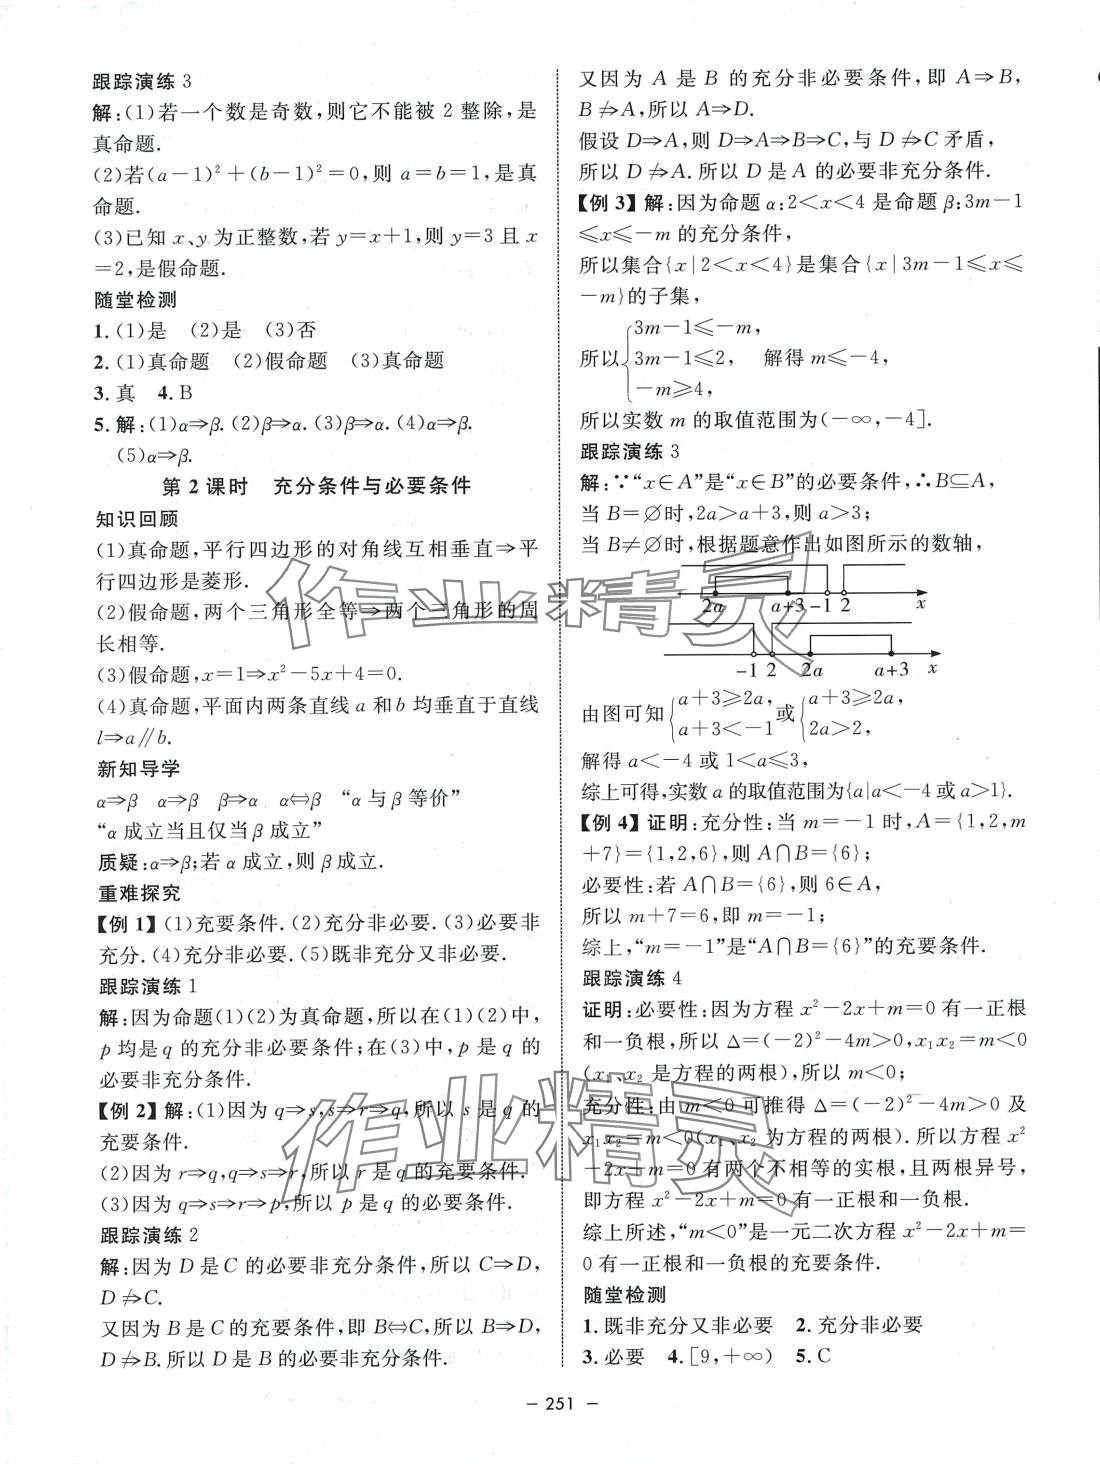 跟踪演练 3
解:(1)若一个数是奇数,则它不能被 2 整除,是
真命题.
(2)若(a-1)²+(b-1)²=0,则 a=b=1,是真
命题.
(3)已知 x、y 为正整数,若 y=x+1,则 y=3 且 x
=2,是假命题.
随堂检测
1.(1)是 (2)是 (3)否
2.(1)真命题 (2)假命题 (3)真命题
3.真 4.B
5.解:(1)α⇒β.(2)β⇒α.(3)β⇒α.(4)α⇒β.
(5)α⇒β.
第 2 课时 充分条件与必要条件
知识回顾
(1)真命题,平行四边形的对角线互相垂直⇒平
行四边形是菱形.
(2)假命题,两个三角形全等⇒两个三角形的周
长相等.
(3)假命题,x=1⇒x²-5x+4=0.
(4)真命题,平面内两条直线 a 和 b 均垂直于直线
l⇒a∥b.
新知导学
α⇒β α⇒β β⇒α α⇔β “α 与 β 等价”
“α 成立当且仅当 β 成立”
质疑:α⇒β;若 α 成立,则 β 成立.
重难探究
【例 1】(1)充要条件.(2)充分非必要.(3)必要非
充分.(4)充分非必要.(5)既非充分又非必要.
跟踪演练 1
解:因为命题(1)(2)为真命题,所以在(1)(2)中,
p 均是 q 的充分非必要条件;在(3)中,p 是 q 的
必要非充分条件.
【例 2】解:(1)因为 q⇒s,s⇒r⇒q,所以 s 是 q 的
充要条件.
(2)因为 r⇒q,q⇒s⇒r,所以 r 是 q 的充要条件.
(3)因为 q⇒s⇒r⇒p,所以 p 是 q 的必要条件.
跟踪演练 2
解:因为 D 是 C 的必要非充分条件,所以 C⇒D,
D⇏C.
又因为 B 是 C 的充要条件,即 B⇔C,所以 B⇒D,
D⇏B.所以 D 是 B 的必要非充分条件.
又因为 A 是 B 的充分非必要条件,即 A⇒B,
B⇏A,所以 A⇒D.
假设 D⇒A,则 D⇒A⇒B⇒C,与 D⇏C 矛盾,
所以 D⇏A.所以 D 是 A 的必要非充分条件.
【例 3】解:因为命题 α:2<x<4 是命题 β:3m-1
≤x≤-m 的充分条件,
所以集合{x|2<x<4}是集合{x|3m-1≤x≤
-m}的子集,
3m-1≤-m,
所以{3m-1≤2, 解得 m≤-4,
-m≥4,
所以实数 m 的取值范围为(-∞,-4].
跟踪演练 3
解:∵“x∈A”是“x∈B”的必要条件,∴B⊆A,
当 B=∅时,2a>a+3,则 a>3;
当 B≠∅时,根据题意作出如图所示的数轴,
2a a+3 -1 2 x
-1 2 2a a+3 x
由图可知{a+3≥2a, a+3<-1 或{a+3≥2a, 2a>2,
解得 a<-4 或 1<a≤3,
综上可得,实数 a 的取值范围为{a|a<-4 或 a>1}.
【例 4】证明:充分性:当 m=-1 时,A={1,2,m
+7}={1,2,6},则 A∩B={6};
必要性:若 A∩B={6},则 6∈A,
所以 m+7=6,即 m=-1;
综上,“m=-1”是“A∩B={6}”的充要条件.
跟踪演练 4
证明:必要性:因为方程 x²-2x+m=0 有一正根
和一负根,所以 Δ=(-2)²-4m>0,x₁x₂=m<0
(x₁、x₂ 是方程的两根),所以 m<0;
充分性:由 m<0 可推得 Δ=(-2)²-4m>0 及
x₁x₂=m<0(x₁、x₂ 为方程的两根).所以方程 x²
-2x+m=0 有两个不相等的实根,且两根异号,
即方程 x²-2x+m=0 有一正根和一负根.
综上所述,“m<0”是一元二次方程 x²-2x+m=
0 有一正根和一负根的充要条件.
随堂检测
1.既非充分又非必要 2.充分非必要
3.必要 4.[9,+∞) 5.C
- 251 -
作业精灵
作业精灵